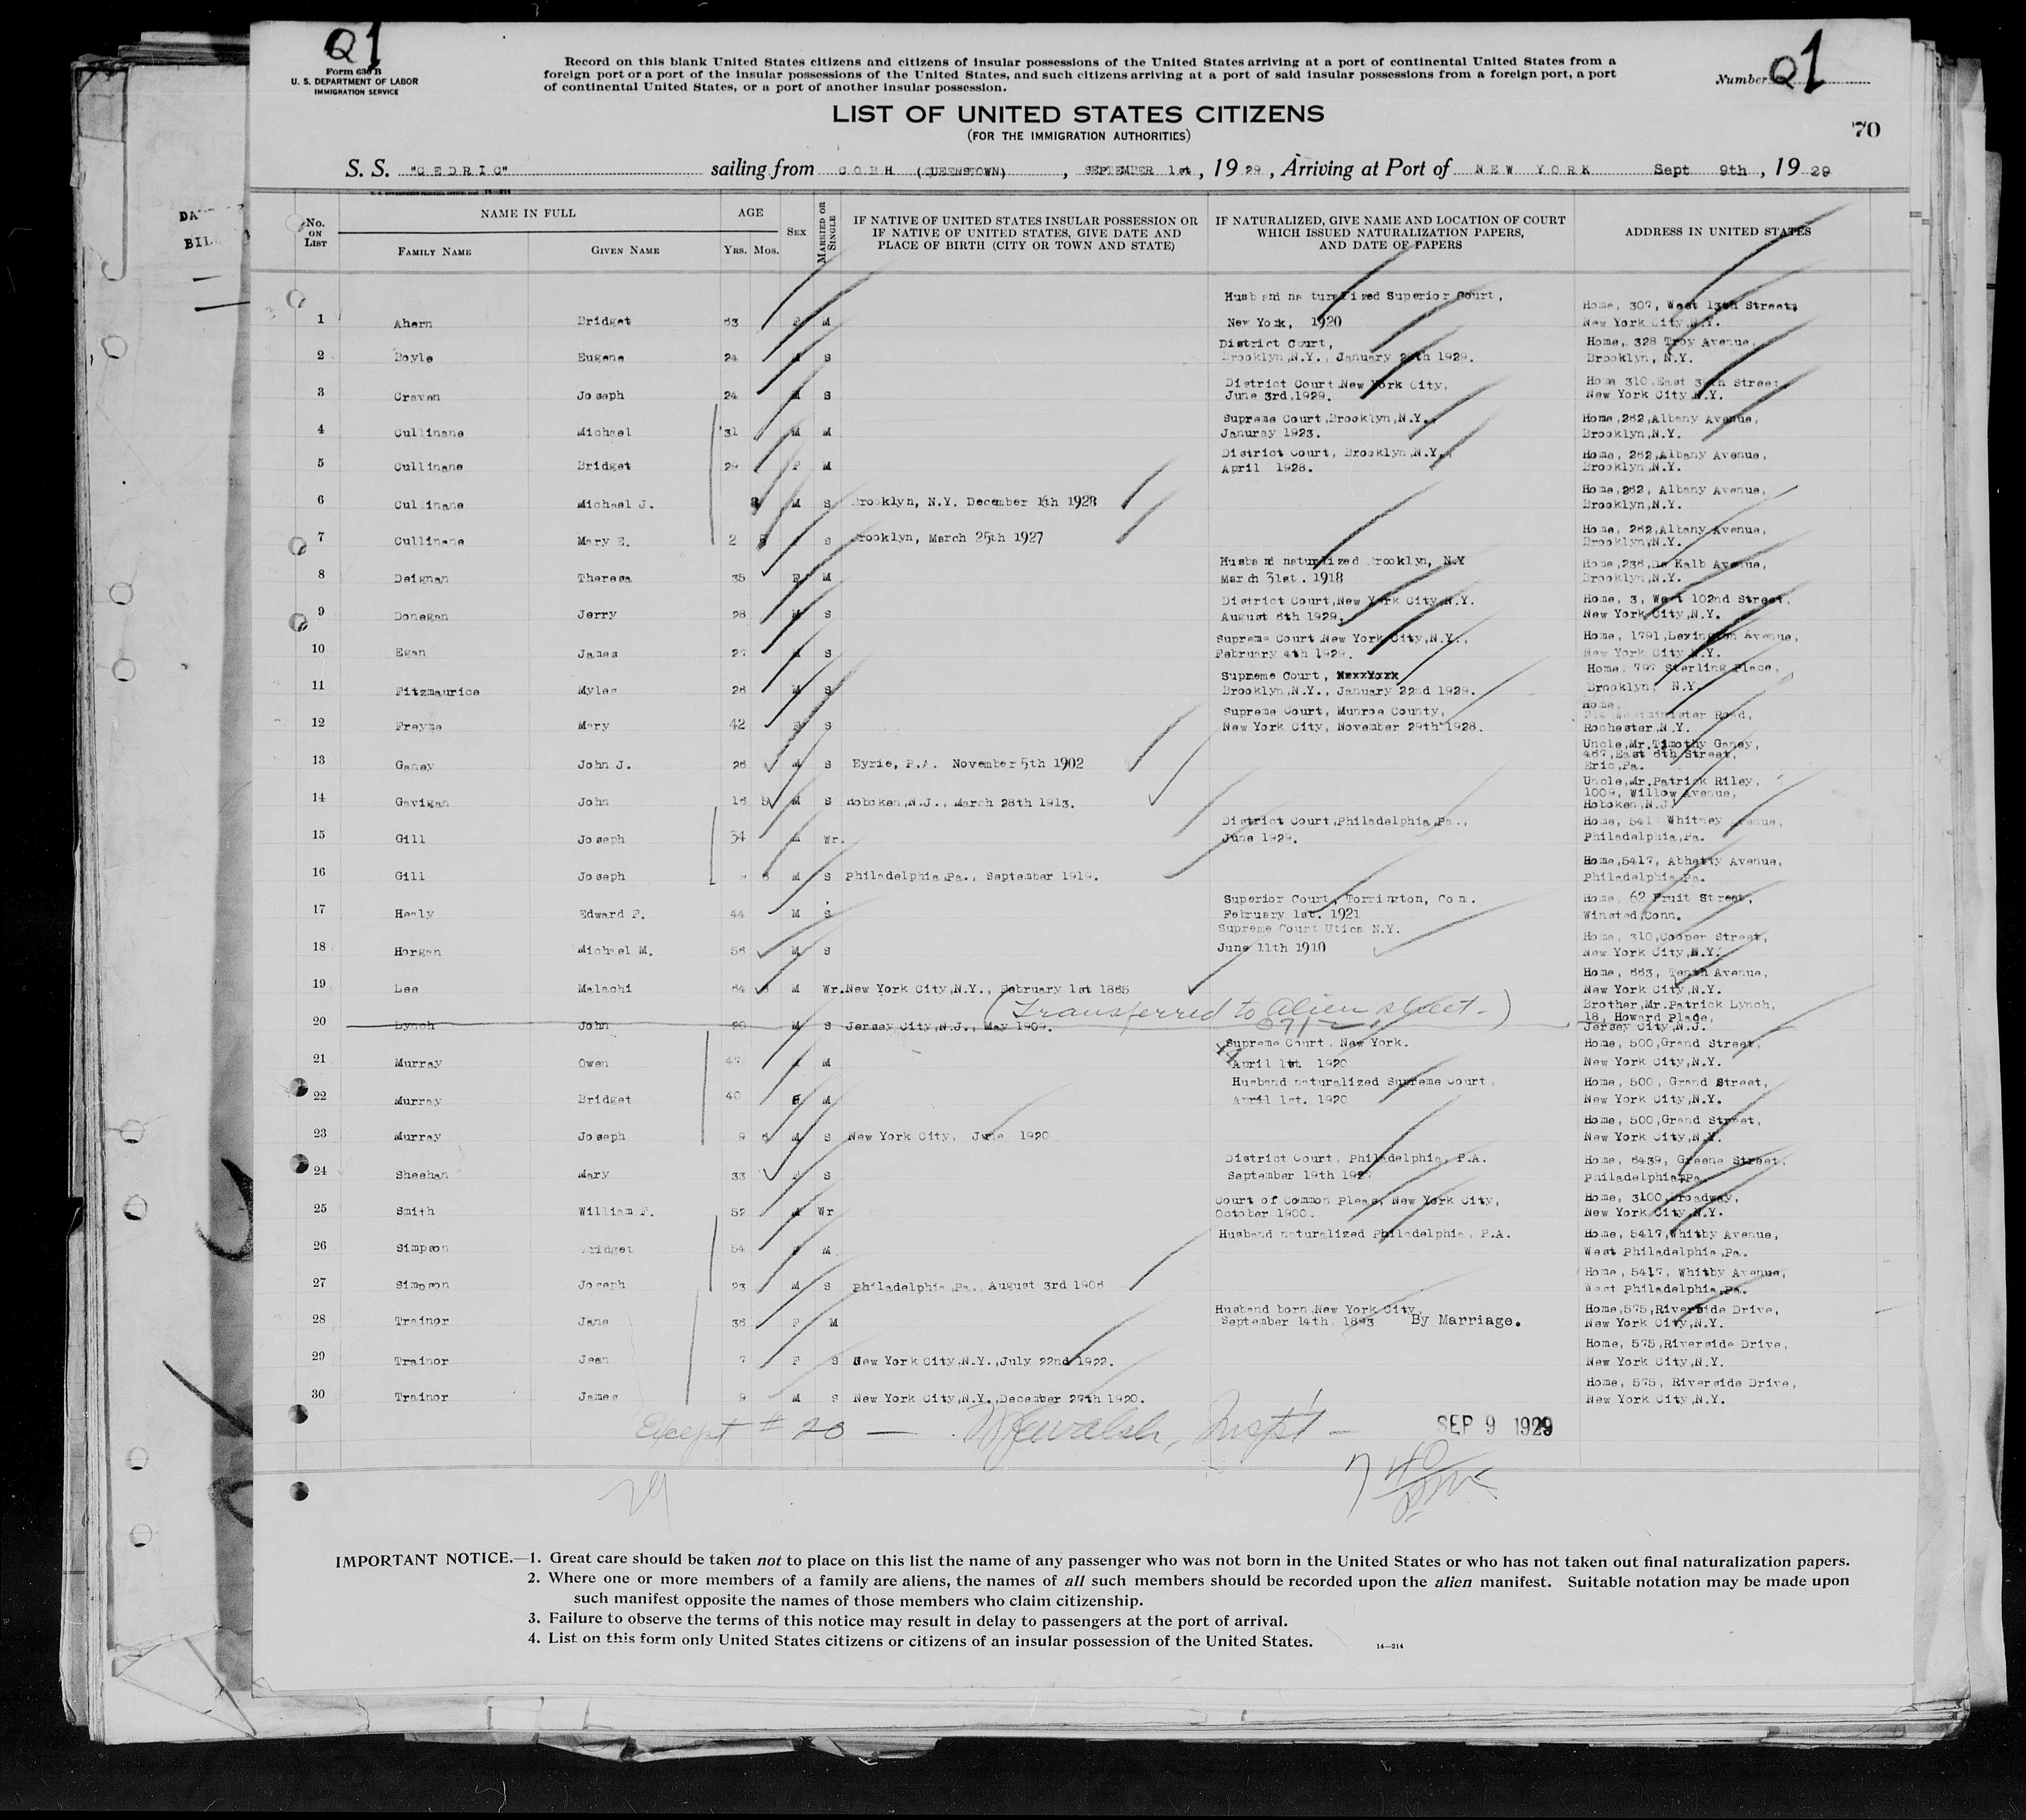 Q1
Form 630 B
U. S. DEPARTMENT OF LABOR
IMMIGRATION SERVICE
Record on this blank United States citizens and citizens of insular possessions of the United States arriving at a port of continental United States from a
foreign port or a port of the insular possessions of the United States, and such citizens arriving at a port of said insular possessions from a foreign port, a port
of continental United States, or a port of another insular possession.
Number Q1
LIST OF UNITED STATES CITIZENS
(FOR THE IMMIGRATION AUTHORITIES)
70
S. S. "CEDRIC" sailing from COBH (QUEENSTOWN), SEPTEMBER 1st, 1929, Arriving at Port of NEW YORK Sept 9th, 1929
No. ON LIST
NAME IN FULL
FAMILY NAME GIVEN NAME
AGE
YRS. MOS.
SEX
MARRIED OR SINGLE
IF NATIVE OF UNITED STATES INSULAR POSSESSION OR
IF NATIVE OF UNITED STATES, GIVE DATE AND
PLACE OF BIRTH (CITY OR TOWN AND STATE)
IF NATURALIZED, GIVE NAME AND LOCATION OF COURT
WHICH ISSUED NATURALIZATION PAPERS,
AND DATE OF PAPERS
ADDRESS IN UNITED STATES
Husband naturalized Superior Court, Home, 307, West 13th Street,
1 Ahern Bridget 63 F M New York, 1920 New York City,N.Y.
District Court, Home, 328 Troy Avenue,
2 Boyle Eugene 24 M S Brooklyn,N.Y., January 1929. Brooklyn, N.Y.
District Court New York City, Home 310,East Street,
3 Craven Joseph 24 M S June 3rd,1929. New York City N.Y.
Supreme Court,Brooklyn,N.Y., Home,262,Albany Avenue,
4 Cullinane Michael 31 M M Januray 1923. Brooklyn,N.Y.
District Court, Brooklyn,N.Y., Home, 262,Albany Avenue,
5 Cullinane Bridget 29 F M April 1928. Brooklyn,N.Y.
Home,262, Albany Avenue,
6 Cullinane Michael J. M S Brooklyn, N.Y. December 1928 Brooklyn,N.Y.
Home, 262,Albany Avenue,
7 Cullinane Mary E. 2 S Brooklyn, March 25th 1927 Brooklyn,N.Y.
Husband naturalized Brooklyn, N.Y Home,236,De Kalb Avenue,
8 Deignan Theresa 35 F M March 31st. 1918 Brooklyn,N.Y.
District Court,New York City,N.Y. Home, 3, West 102nd Street,
9 Donegan Jerry 28 M S August 6th 1929. New York City,N.Y.
Supreme Court New York City,N.Y., Home, 1791,Lexington Avenue,
10 Egan James 27 M S February 4th 1929. New York City N.Y.
Supreme Court, Home 797 Sterling Place,
11 Fitzmaurice Myles 26 M S Brooklyn,N.Y., January 22nd 1929. Brooklyn, N.Y.
Supreme Court, Munroe County, Home, Westminister Road,
12 Freyne Mary 42 F S New York City, November 29th 1928. Rochester,N.Y.
Uncle,Mr.Timothy Ganey,
467,East 8th Street,
13 Ganey John J. 26 M S Eyrie, P.A. November 5th 1902 Eric,Pa.
Uncle,Mr.Patrick Riley,
1009, Willow Avenue,
14 Gavigan John 16 5 M S Hoboken,N.J., March 28th 1913. Hoboken,N.J.
District Court,Philadelphia,Pa., Home, 541 Whitney Avenue,
15 Gill Joseph 34 M Wr. June 1929. Philadelphia,Pa.
Home,5417, Avenue,
16 Gill Joseph 9 M S Philadelphia,Pa., September 1919. Philadelphia,Pa.
Superior Court, Torrington, Conn. Home, 62 Fruit Street,
17 Healy Edward F. 44 M S February 1st. 1921 Winsted,Conn.
Supreme Court Utica N.Y. Home, 310,Cooper Street,
18 Horgan Michael M. 56 M S June 11th 1910 New York City,N.Y.
Home, 663, Tenth Avenue,
19 Lee Malachi 64 M Wr. New York City,N.Y., February 1st 1865 New York City,N.Y.
(Transferred to alien sheet-) Brother,Mr.Patrick Lynch,
18, Howard Place,
20 Lynch John 20 M S Jersey City,N.J., May 1909. Jersey City,N.J.
Supreme Court, New York. Home, 500,Grand Street,
21 Murray Owen 47 M M April 1st. 1920 New York City,N.Y.
Husband naturalized Supreme Court, Home, 500, Grand Street,
22 Murray Bridget 40 F M April 1st. 1920 New York City,N.Y.
Home, 500,Grand Street,
23 Murray Joseph 9 M S New York City, June 1920 New York City,N.Y.
District Court, Philadelphia, P.A. Home, 6439, Greene Street,
24 Sheehan Mary 33 F S September 19th Philadelphia,Pa.
Court of Common Pleas, New York City, Home, 3100,Broadway,
25 Smith William F. 52 M Wr October 1900. New York City,N.Y.
Husband naturalized Philadelphia, P.A. Home, 5417,Whitby Avenue,
26 Simpson Bridget 54 F M West Philadelphia,Pa.
Home, 5417, Whitby Avenue,
27 Simpson Joseph 23 M S Philadelphia,Pa., August 3rd 1906 West Philadelphia,Pa.
Husband born,New York City, Home,575,Riverside Drive,
28 Trainor Jane 36 F M September 14th, 1893 By Marriage. New York City,N.Y.
Home, 575,Riverside Drive,
29 Trainor Jean 7 F S New York City,N.Y.,July 22nd 1922. New York City,N.Y.
Home, 575, Riverside Drive,
30 Trainor James 9 M S New York City,N.Y.,December 27th 1920. New York City,N.Y.
Except # 20 — Walsh, Insp't — SEP 9 1929
29
IMPORTANT NOTICE.—1. Great care should be taken not to place on this list the name of any passenger who was not born in the United States or who has not taken out final naturalization papers.
2. Where one or more members of a family are aliens, the names of all such members should be recorded upon the alien manifest. Suitable notation may be made upon
such manifest opposite the names of those members who claim citizenship.
3. Failure to observe the terms of this notice may result in delay to passengers at the port of arrival.
4. List on this form only United States citizens or citizens of an insular possession of the United States.
14—214